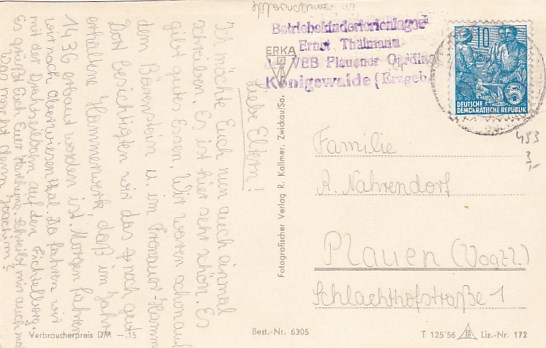 Betriebskinderferienlager
Ernst Thälmann
VEB Plauener Gardine
Königswalde (Erzgeb.)
ERKA
10
5
DEUTSCHE
DEMOKRATISCHE REPUBLIK
453
3,-
Liebe Eltern!
Ich möchte Euch nun auch einmal
schreiben. Es ist hier sehr schön. Es
gibt gutes Essen. Wir waren schon auf
dem Bärenstein u. im Frohnauer Hammer
Dort besichtigten wir das noch gut
erhaltene Hammerwerk daß im Jahre
1436 erbaut worden ist. Morgen fahren
wir nach Oberwiesenthal. Da fahren wir
mit der Drahtseilbahn auf den Fichtelberg.
Es grüßt Euch Euer Hartmut. Schreibt mir auch mal
Was macht denn Joachim?
Fotografischer Verlag R. Kallmer, Zwickau/Sa.
Familie
A. Nahrendorf
Plauen (Vogtl.)
Schlachthofstraße 1
Verbraucherpreis DM -.15
Best.-Nr. 6305
T 125/56
Liz.-Nr. 172